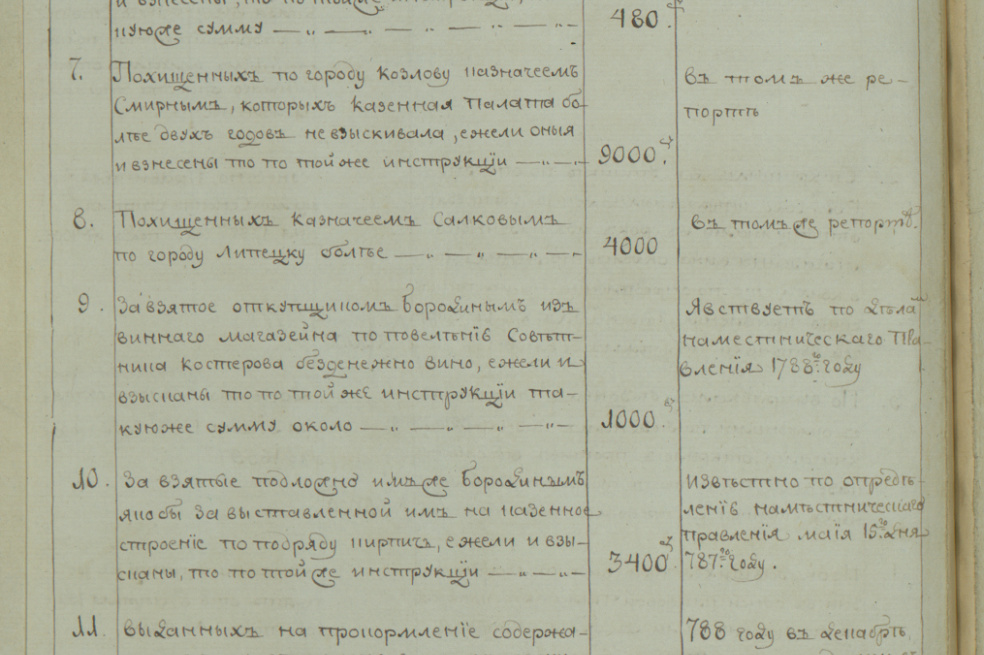 нуюже сумму — „ — „ — „ — „ — 480.
7. Похищенныхъ по городу Козлову казначеемъ
Смирнымъ, которыхъ казенная Палата бо-
лѣе двухъ годовъ не взыскивала, ежели оныя
и взнесены то по той же инструкціи — „ — „ — 9000.
въ томъ же ре-
портѣ
8. Похищенныхъ казначеемъ Салковымъ
по городу Липецку болѣе — „ — „ — „ — 4000
въ томъ же репортѣ.
9. За взятое откупщикомъ Бородинымъ изъ
виннаго магазейна по повелѣнію Совѣт-
ника Костерова безденежно вино, ежели и
взысканы то по той же инструкціи та-
куюже сумму около — „ — „ — „ — 1000
Явствуетъ по дѣламъ
намѣстническаго Пра-
вленія 1788го году
10. За взятые подложно имъ же Бородинымъ
якобы за выставленной имъ на казенное
строеніе по подряду кирпичъ, ежели и взы-
сканы, то по той же инструкціи — „ — „ — 3400
Извѣстно по опредѣ-
ленію намѣстническаго
правленія маія 15го дня
787го году.
11. Выданныхъ на прокормленіе содержа-
788 году въ декабрѣ